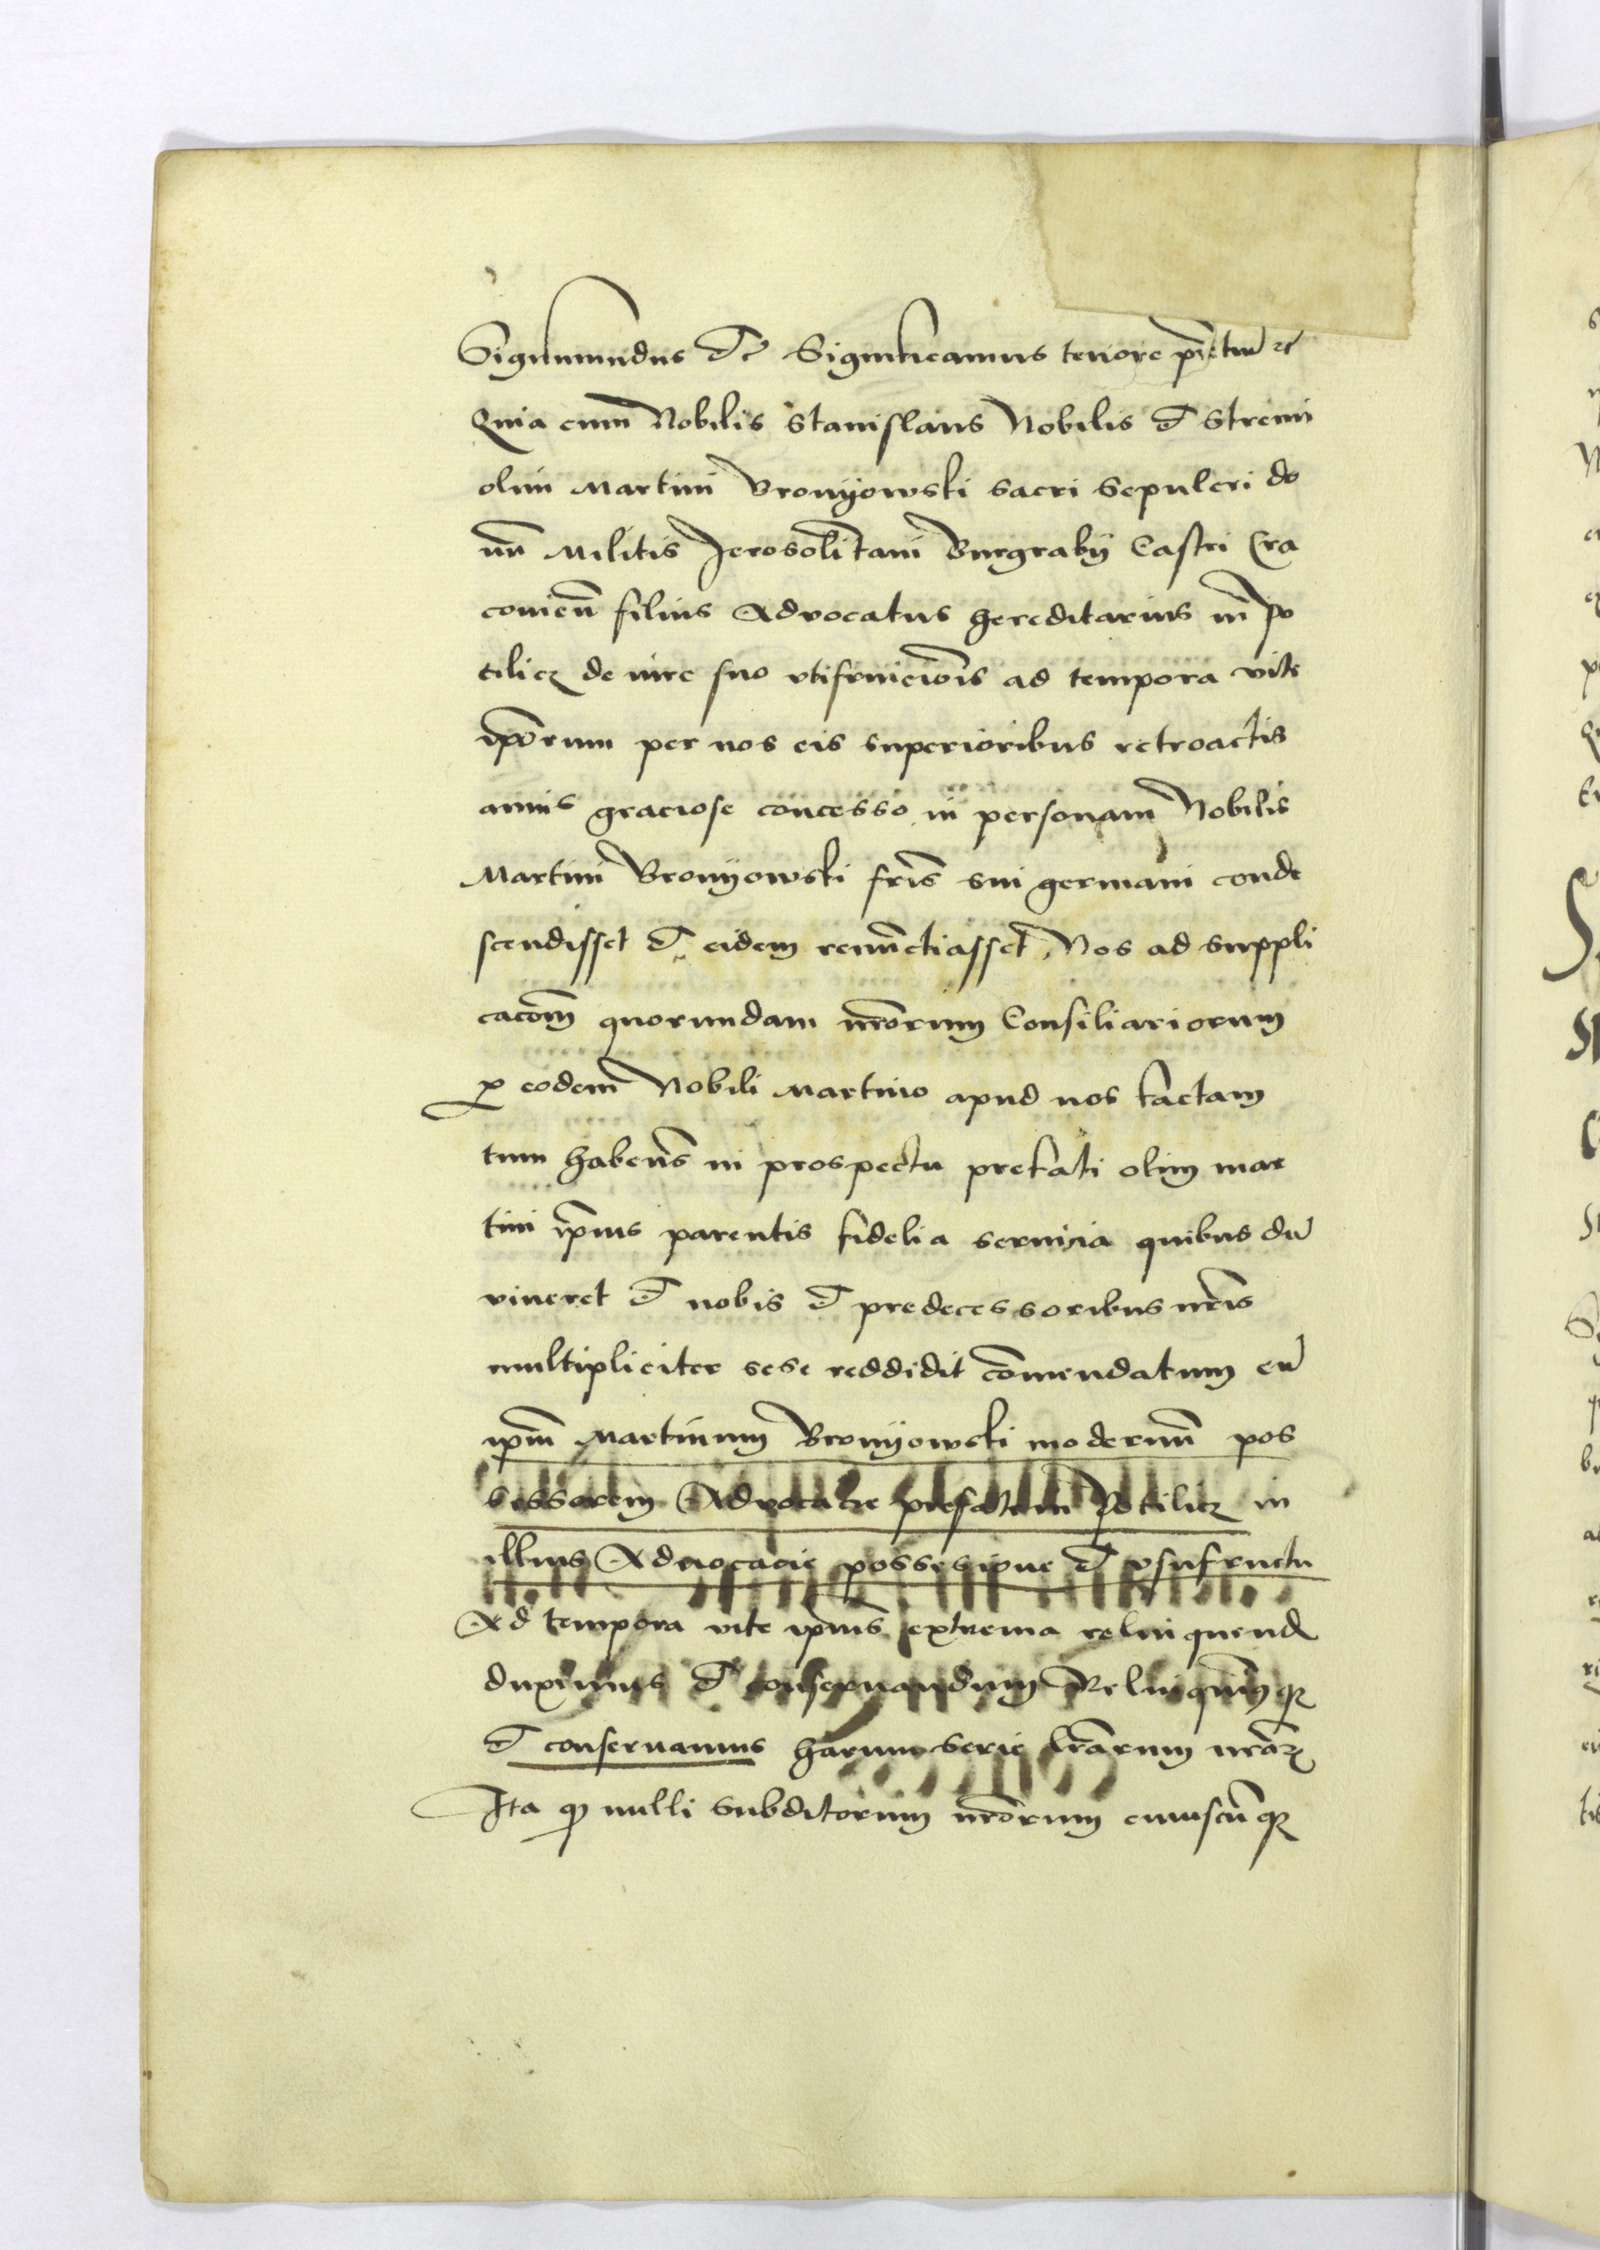 Sigismundus &c Significamus tenore pñtiũ &c
Quia cum Nobilis Stanislaus Nobilis & Strenui
olim Martini Wronyowski sacri Sepulcri do
nñ Militis Jerosolitani Burgrabij Castri Cra
covieñ filius Advocatus hereditarius in Po
cilicz de iure suo vtifruicionis ad tempora vite
ipõrum per nos eis superioribus retroactis
annis graciose concesso in personam Nobilis
Martini Wronyowski fris̃ sui germani conde
scendisset & eidem renunctiasset, Nos ad suppli
cacõm quorundam nrõrum Consiliariorum
p eodem Nobili Martino apud nos factam
tum habeñs in prospectu prefati olim mar
tini ip̃ius parentis fidelia seruicia quibus dũ
viueret & nobis & predecessoribus nr̃is
multipliciter sese reddidit cõmendatum eũ
ip̃m Martinum Wronyowski modernũ pos
sessorem Advocacie prefatum Pocilicz in
illius Aduocacie possessione & vsufructu
Ad tempora vite ip̃ius extrema relinquend
duximus & conseruandum Relinquimusqz
& conseruamus harum serie lr̃arum nr̃ar
Ita qz nulli Subditorum nrõrum cuiuscũqz